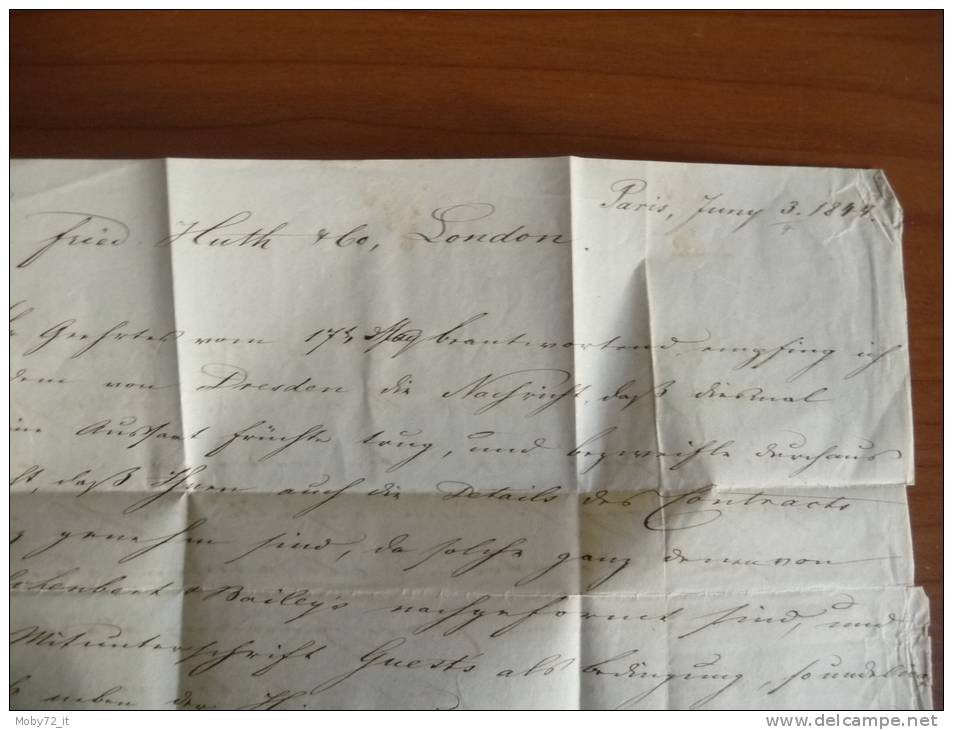 Paris, Juny 3. 1844.
Fried. Huth & Co, London.
Geehrtes vom 17t May beantwortend, empfing ich
dem von Dresden die Nachricht, daß diesmal
Aussaat Früchte trug, und bezweifle durchaus
daß Ihnen auch die Details des Contracts
genehm sind, da solche ganz denen von
& Bailey's nachgeformt sind, und
Mitunterschrift Guests als Bedingung,
neben der
Moby72_it
www.delcampe.net